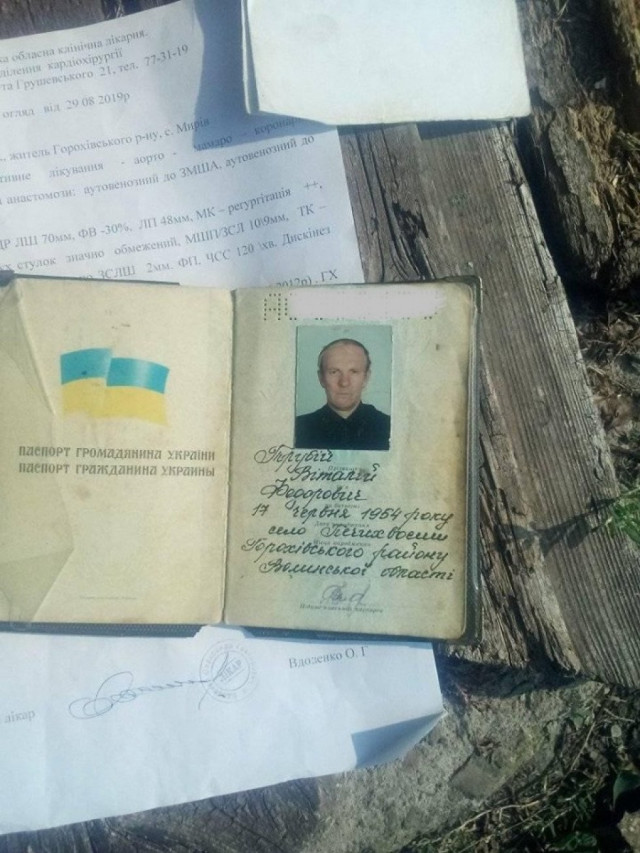 ка обласна клінічна лікарня.
ділення кардіохірургії
та Грушевського 21, тел. 77-31-19
огляд від 29 08 2019р
., житель Горохівського р-ну, с. Мирів
тивне лікування - аорто - мамаро -
анастомози: аутовенозний до ЗМША, аутовенозний до
ДР ЛШ 70мм, ФВ -30%, ЛП 48мм, МК – регургітація ++,
х стулок значно обмежений, МШП/ЗСЛ 10\9мм, ТК –
ЗСЛШ 2мм. ФП, ЧСС 120 \хв. Дискінез
2012р) , ГХ
ПАСПОРТ ГРОМАДЯНИНА УКРАЇНИ
ПАСПОРТ ГРАЖДАНИНА УКРАИНЫ
Віталій
Федорович
17 червня 1954 року
село Печихвости
Горохівського району
Волинської області
лікар
Вдозенко О. Г
ЛІКАР